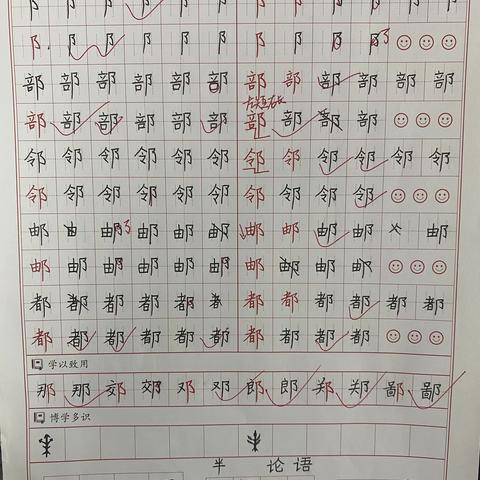 阝 阝 阝 阝 阝 阝 阝 阝 阝 阝 阝 阝
阝 阝 阝 阝 阝 阝 阝 阝 阝 阝
部 部 部 部 部 部 部 部 部 部 部 部
部 部 部 部 部 部 部 部 部 部
邻 邻 邻 邻 邻 邻 邻 邻 邻 邻 邻 邻
邻 邻 邻 邻 邻 邻 邻 邻 邻 邻
邮 由 邮 邮 邮 邮 邮 邮 邮 邮 邮
邮 邮 邮 邮 邮 邮 邮 邮 邮 邮
都 都 都 都 都 都 都 都 都 都 都
都 都 都 都 都 都 都 都 都 都
学以致用
那 那 郊 郊 邓 邓 郎 郎 郑 郑 鄙 鄙
博学多识
半 论语